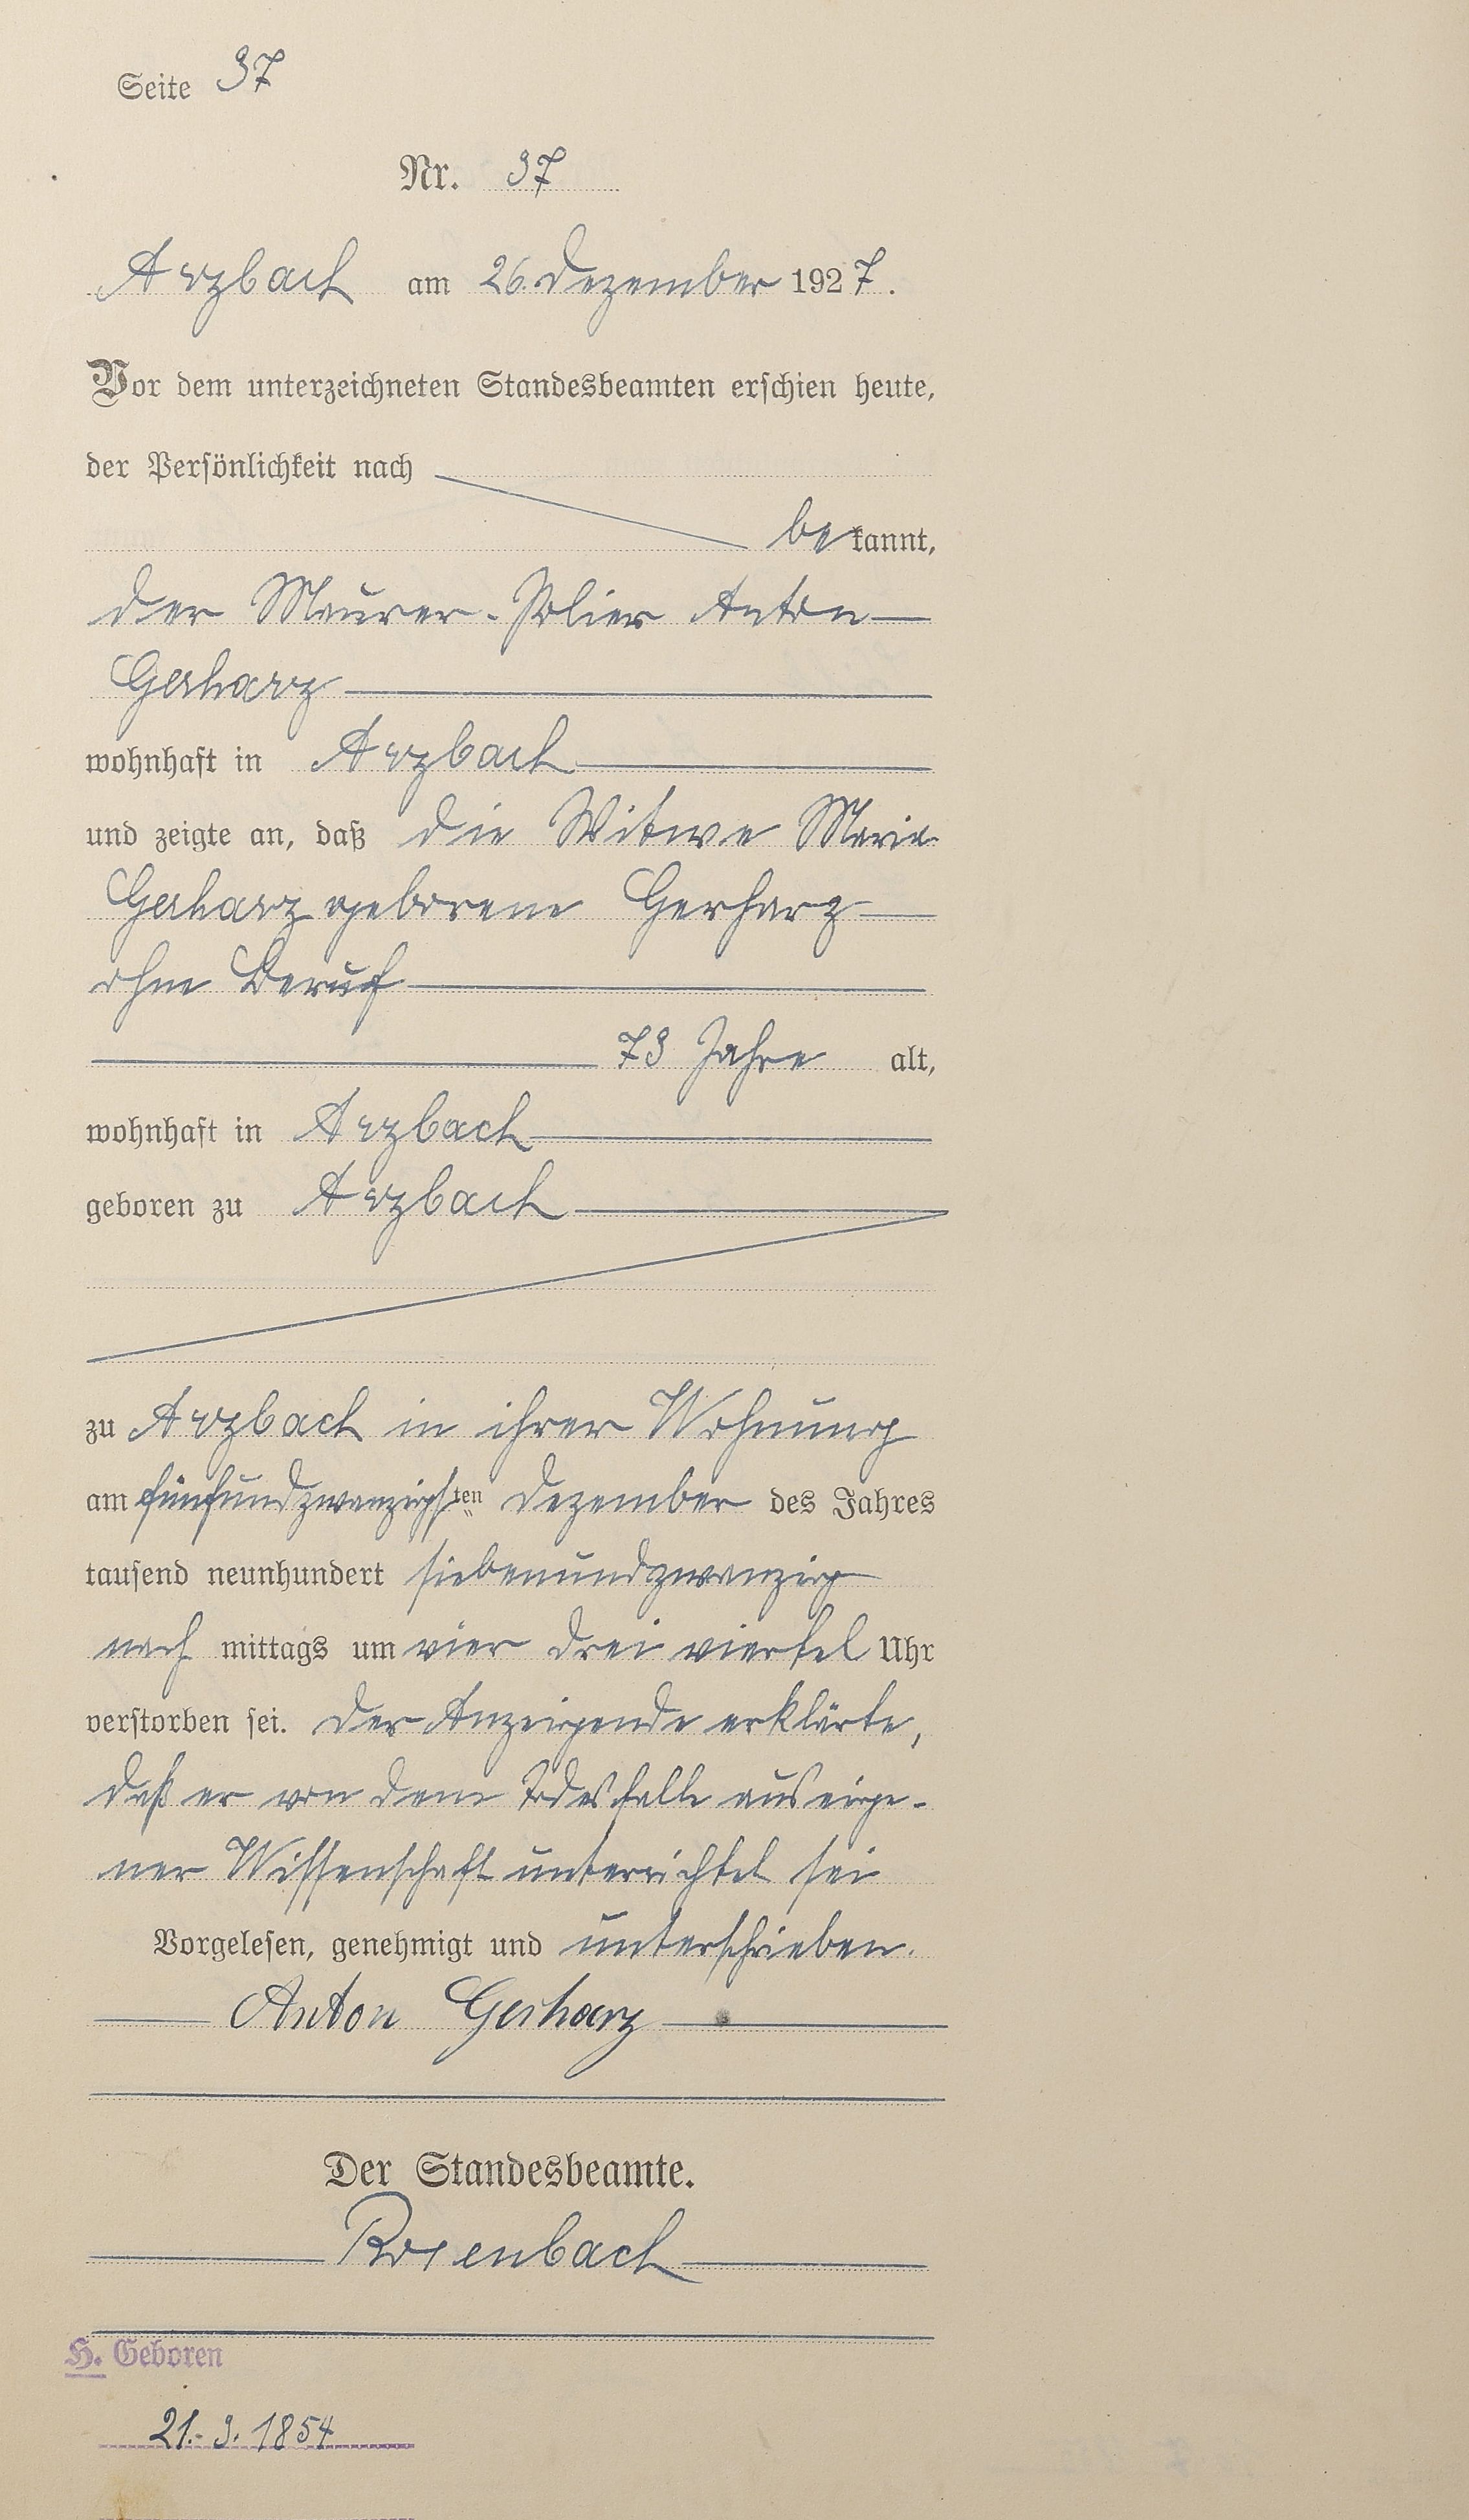 Seite 37
Nr. 37
Arzbach am 26. Dezember 1927.
Vor dem unterzeichneten Standesbeamten erschien heute,
der Persönlichkeit nach
bekannt,
der Maurer-Polier Anton
Gerharz
wohnhaft in Arzbach
und zeigte an, daß die Witwe Maria
Gerharz geborene Gerharz
ohne Beruf
73 Jahre alt,
wohnhaft in Arzbach
geboren zu Arzbach
zu Arzbach in ihrer Wohnung
am fünfundzwanzigsten Dezember des Jahres
tausend neunhundert siebenundzwanzig
nach mittags um vier drei viertel Uhr
verstorben sei. Der Anzeigende erklärte,
daß er von dem Todesfalle aus eige-
ner Wissenschaft unterrichtet sei
Vorgelesen, genehmigt und unterschrieben.
Anton Gerharz
Der Standesbeamte.
Rosenbach
H. Geboren
21.-3. 1854